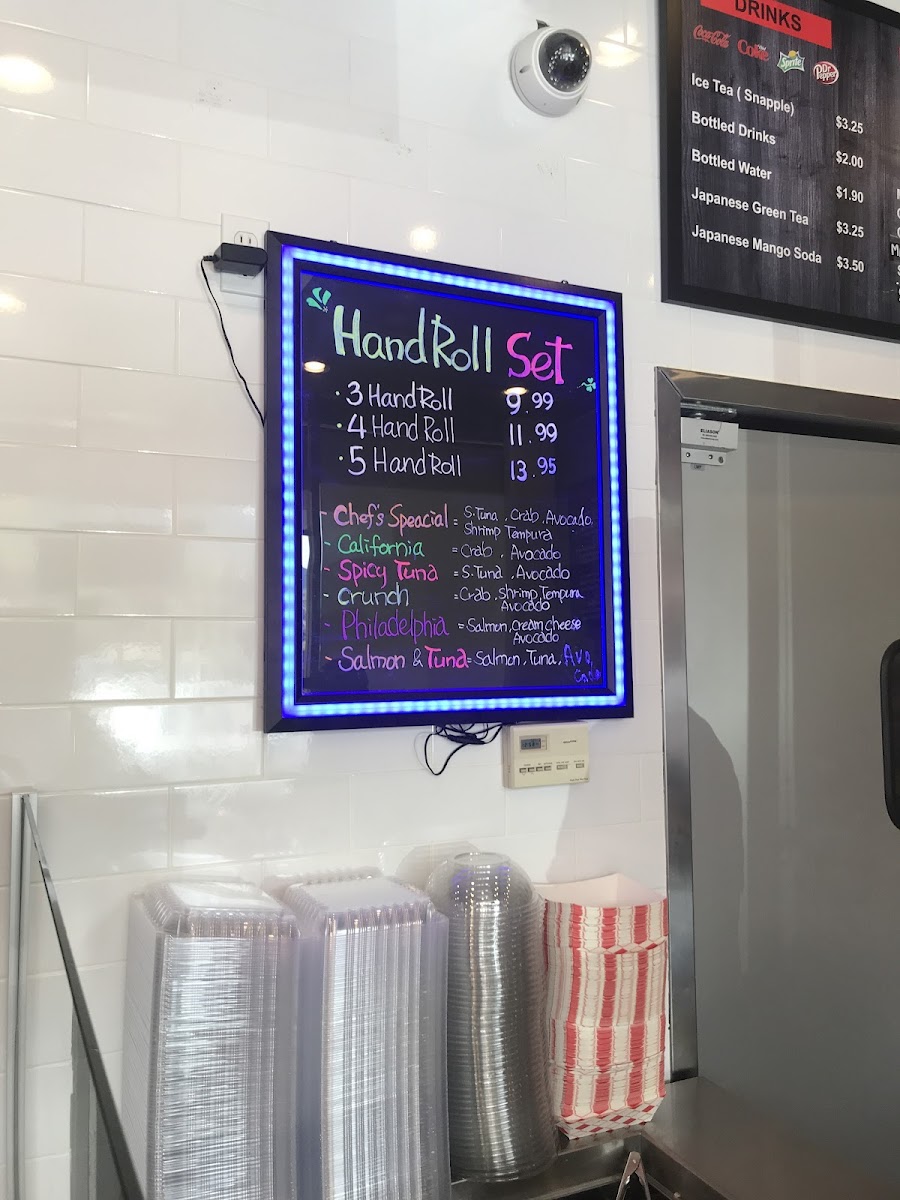 DRINKS
Coca-Cola
Coke
Sprite
Dr Pepper
Ice Tea ( Snapple) $3.25
Bottled Drinks $2.00
Bottled Water $1.90
Japanese Green Tea $3.25
Japanese Mango Soda $3.50
Hand Roll Set
· 3 Hand Roll 9.99
· 4 Hand Roll 11.99
· 5 Hand Roll 13.95
- Chef's Speacial = S.Tuna, Crab, Avocado,
Shrimp Tempura
- California = Crab, Avocado
- Spicy Tuna = S.Tuna, Avocado
- Crunch = Crab, Shrimp, Tempura
Avocado
- Philadelphia = Salmon, Cream cheese
Avocado
- Salmon & Tuna = Salmon, Tuna, Avo,